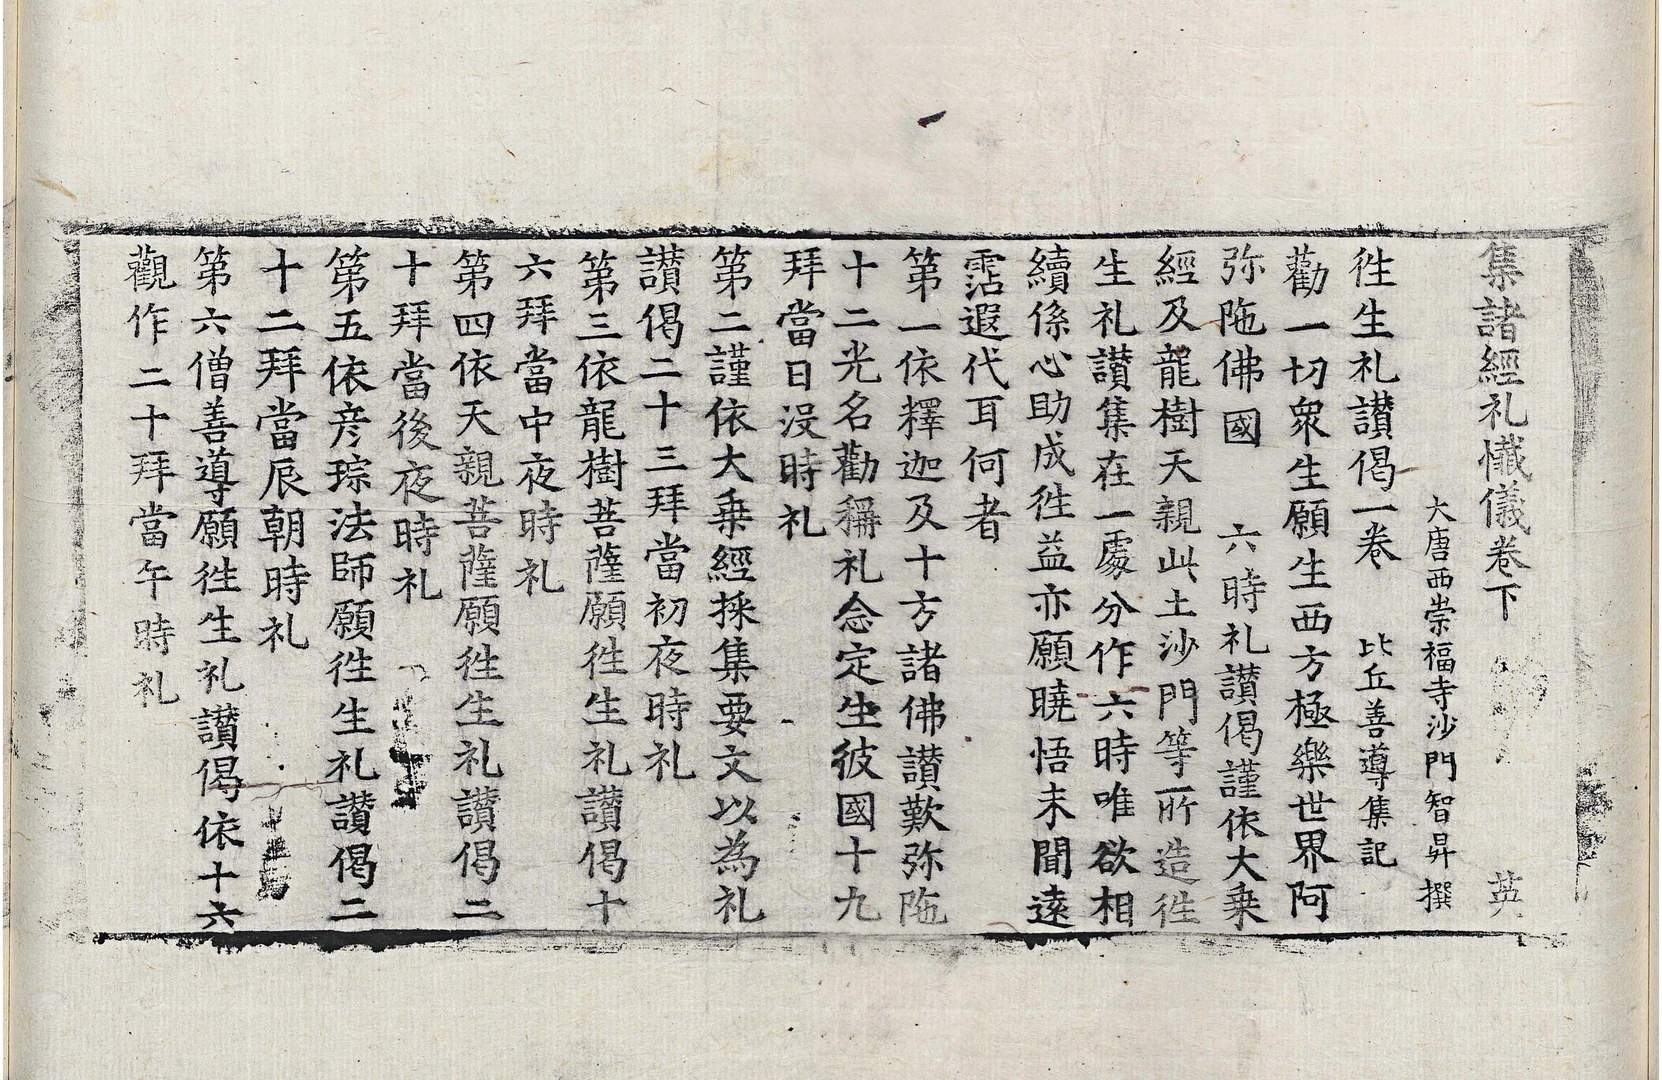 集諸經礼懺儀卷下 英
大唐西崇福寺沙門智昇撰
徃生礼讃偈一卷 比丘善導集記
勸一切衆生願生西方極樂世界阿
弥陁佛國 六時礼讃偈謹依大乗
經及龍樹天親此土沙門等所造徃
生礼讃集在一處分作六時唯欲相
續係心助成徃益亦願曉悟未聞遠
霑遐代耳何者
第一依釋迦及十方諸佛讃歎弥陁
十二光名勸稱礼念定生彼國十九
拜當日没時礼
第二謹依大乗經採集要文以為礼
讃偈二十三拜當初夜時礼
第三依龍樹菩薩願徃生礼讃偈十
六拜當中夜時礼
第四依天親菩薩願徃生礼讃偈二
十拜當後夜時礼
第五依彦琮法師願徃生礼讃偈二
十二拜當辰朝時礼
第六僧善導願徃生礼讃偈依十六
觀作二十拜當午時礼